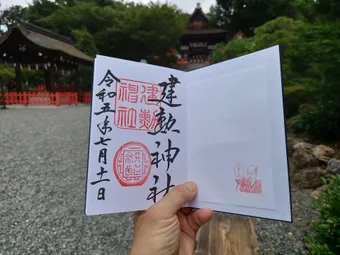 建勲神社
建勲神社
令和五年七月十一日